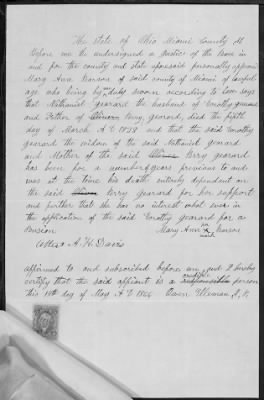 The State of Ohio Miami County SS
Before me the undersigned a Justice of the Peace in
and for the county and state aforesaid personally appeared
Mary Ann Pearson of said county of Miami of lawful
age who being by me duly sworn according to law says
that Nathaniel gerard the husband of Timothy gerard
and Father of Perry gerard, died the fifth
day of March A D 1858 and that the said Timothy
gerard the widow of the said Nathaniel gerard
and Mother of the said Perry gerard
has been for a number of years previous to and
was at the time his death entirely dependent on
the said Perry gerard for her support
and further that she has no interest what ever in
the application of the said Timothy gerard for a
Pension
Mary Ann her x mark
Attest A. H. Davis
affirmed to and subscribed before me and I hereby
certify that the said affiant is a credible person
this 14th day of May A D 1866 Owen Elleman J, P,